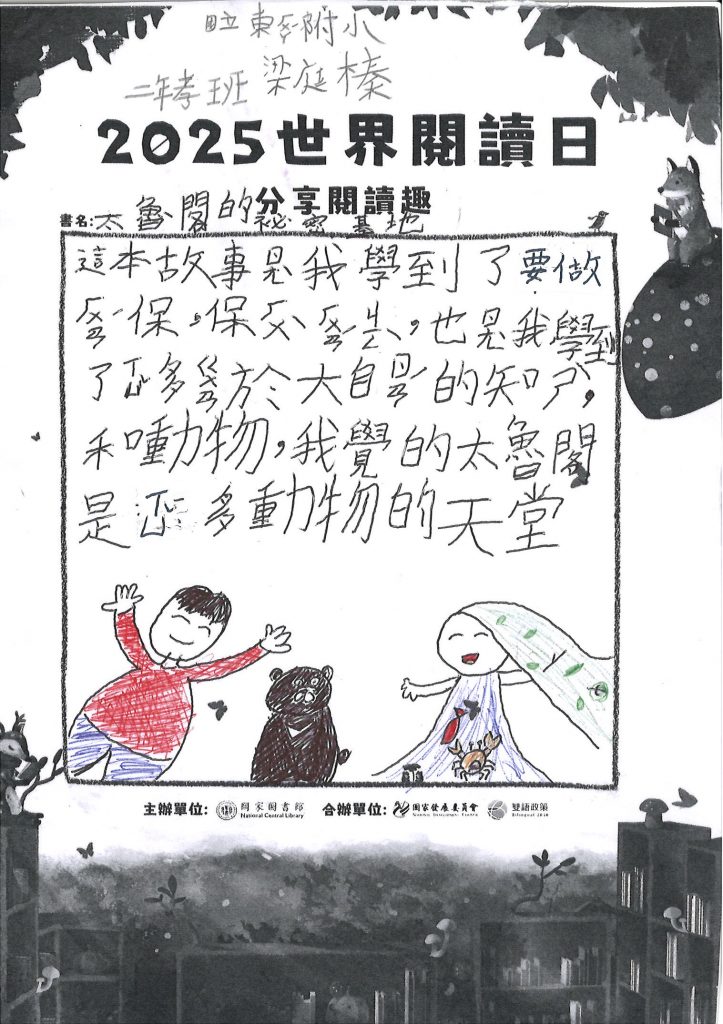 附小
二年孝班 梁庭榛
2025世界閱讀日
分享閱讀趣
書名:太魯閣的祕密基地
這本故事是我學到了要做
ㄏㄨㄢˊ保,保ㄏㄨˋ,也是我學到
了ㄒㄩˇ多ㄍㄨㄢ於大自ㄖㄢˊ的知ㄕˋ,
和動物,我覺的太魯閣
是ㄒㄩˇ多動物的天堂
主辦單位: 國家圖書館 National Central Library 合辦單位: 國家發展委員會 National Development Council 雙語政策 Bilingual 2030